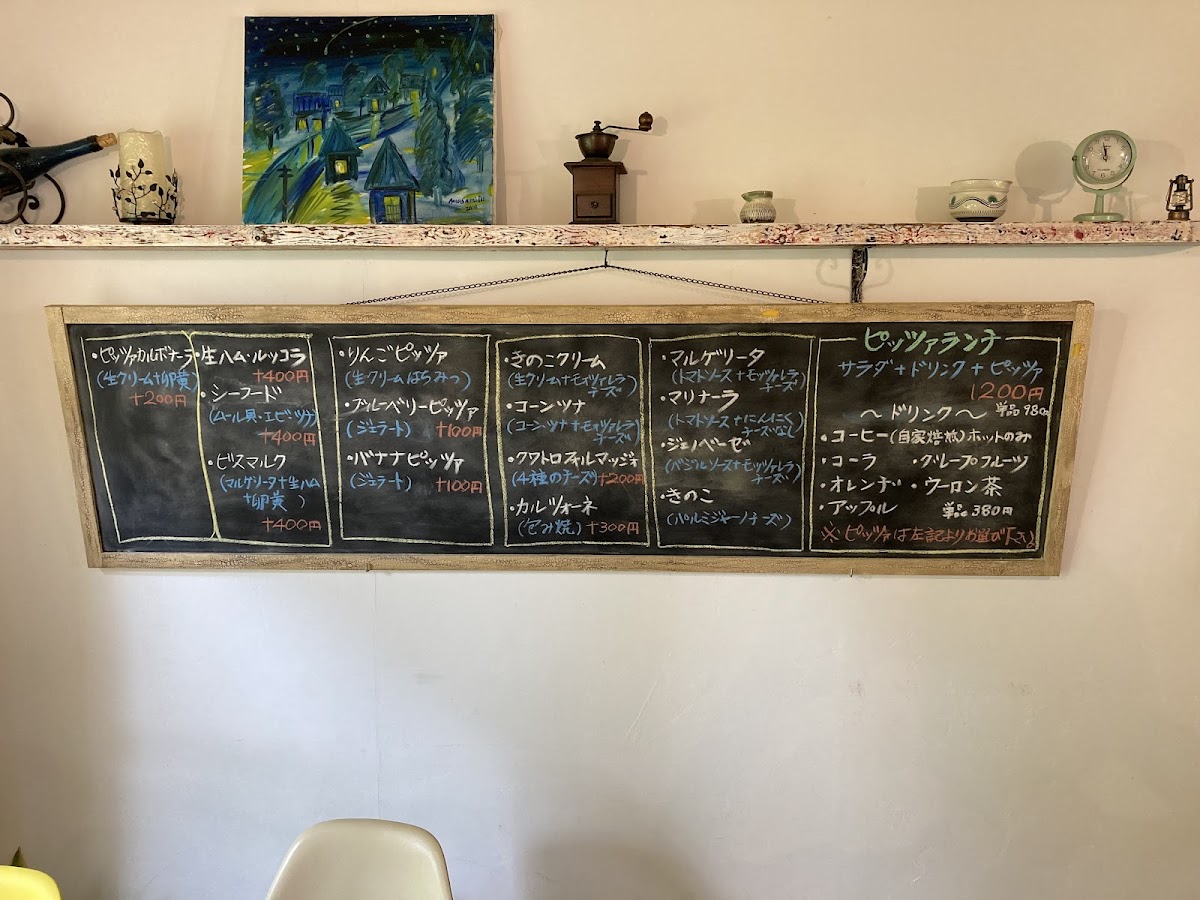 ・ピッツァカルボナーラ
(生クリーム+卵黄)
+200円
・生ハム・ルッコラ
+400円
・シーフード
(ムール貝・エビ・ツナ)
+400円
・ビスマルク
(マルゲリータ+生ハム
+卵黄)
+400円
・りんごピッツァ
(生クリームはちみつ)
・ブルーベリーピッツァ
(ジェラート) +100円
・バナナピッツァ
(ジェラート) +100円
・きのこクリーム
(生クリーム+モッツァレラ
チーズ)
・コーンツナ
(コーンツナ+モッツァレラ
チーズ)
・クワトロフォルマッジォ
(4種のチーズ)+200円
・カルツォーネ
(包み焼) +300円
・マルゲリータ
(トマトソース+モッツァレラ
チーズ)
・マリナーラ
(トマトソース+にんにく
チーズなし)
・ジェノベーゼ
(バジルソース+モッツァレラ
チーズ)
・きのこ
(パルミジャーノチーズ)
ピッツァランチ
サラダ+ドリンク+ピッツァ
1200円
単品980
〜ドリンク〜
・コーヒー(自家焙煎)ホットのみ
・コーラ ・グループフルーツ
・オレンヂ ・ウーロン茶
・アップル 単品380円
※ピッツァは左記よりお選び下さい